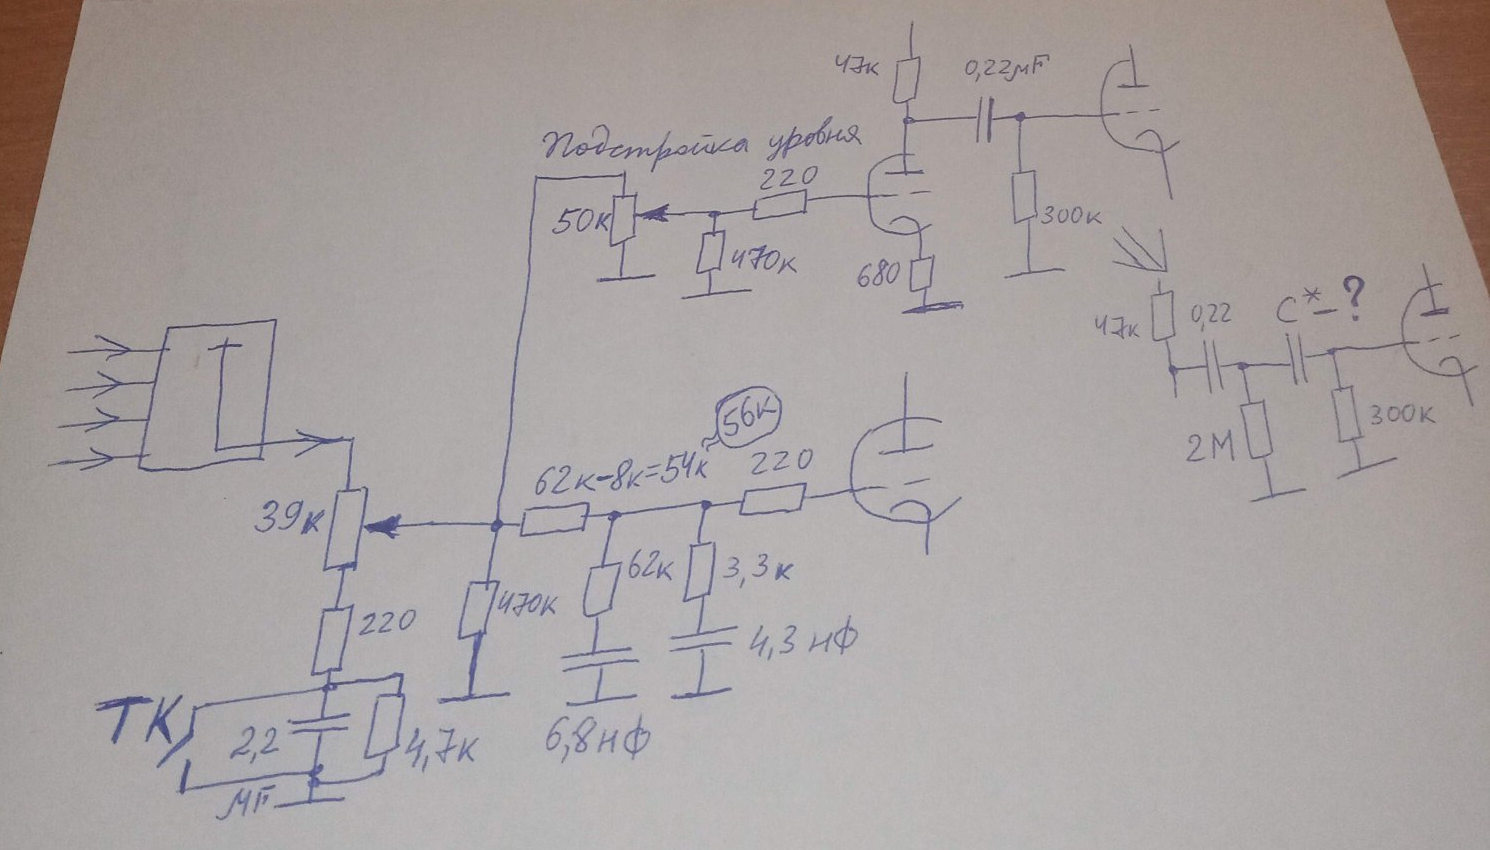 47к
0,22мF
Подстройка уровня
220
50к
470к
680
300к
47к
0,22
C*-?
2М
300к
56к
62к-8к=54к
220
39к
62к
3,3к
220
470к
4,3 нф
ТК
2,2
мF
4,7к
6,8нф